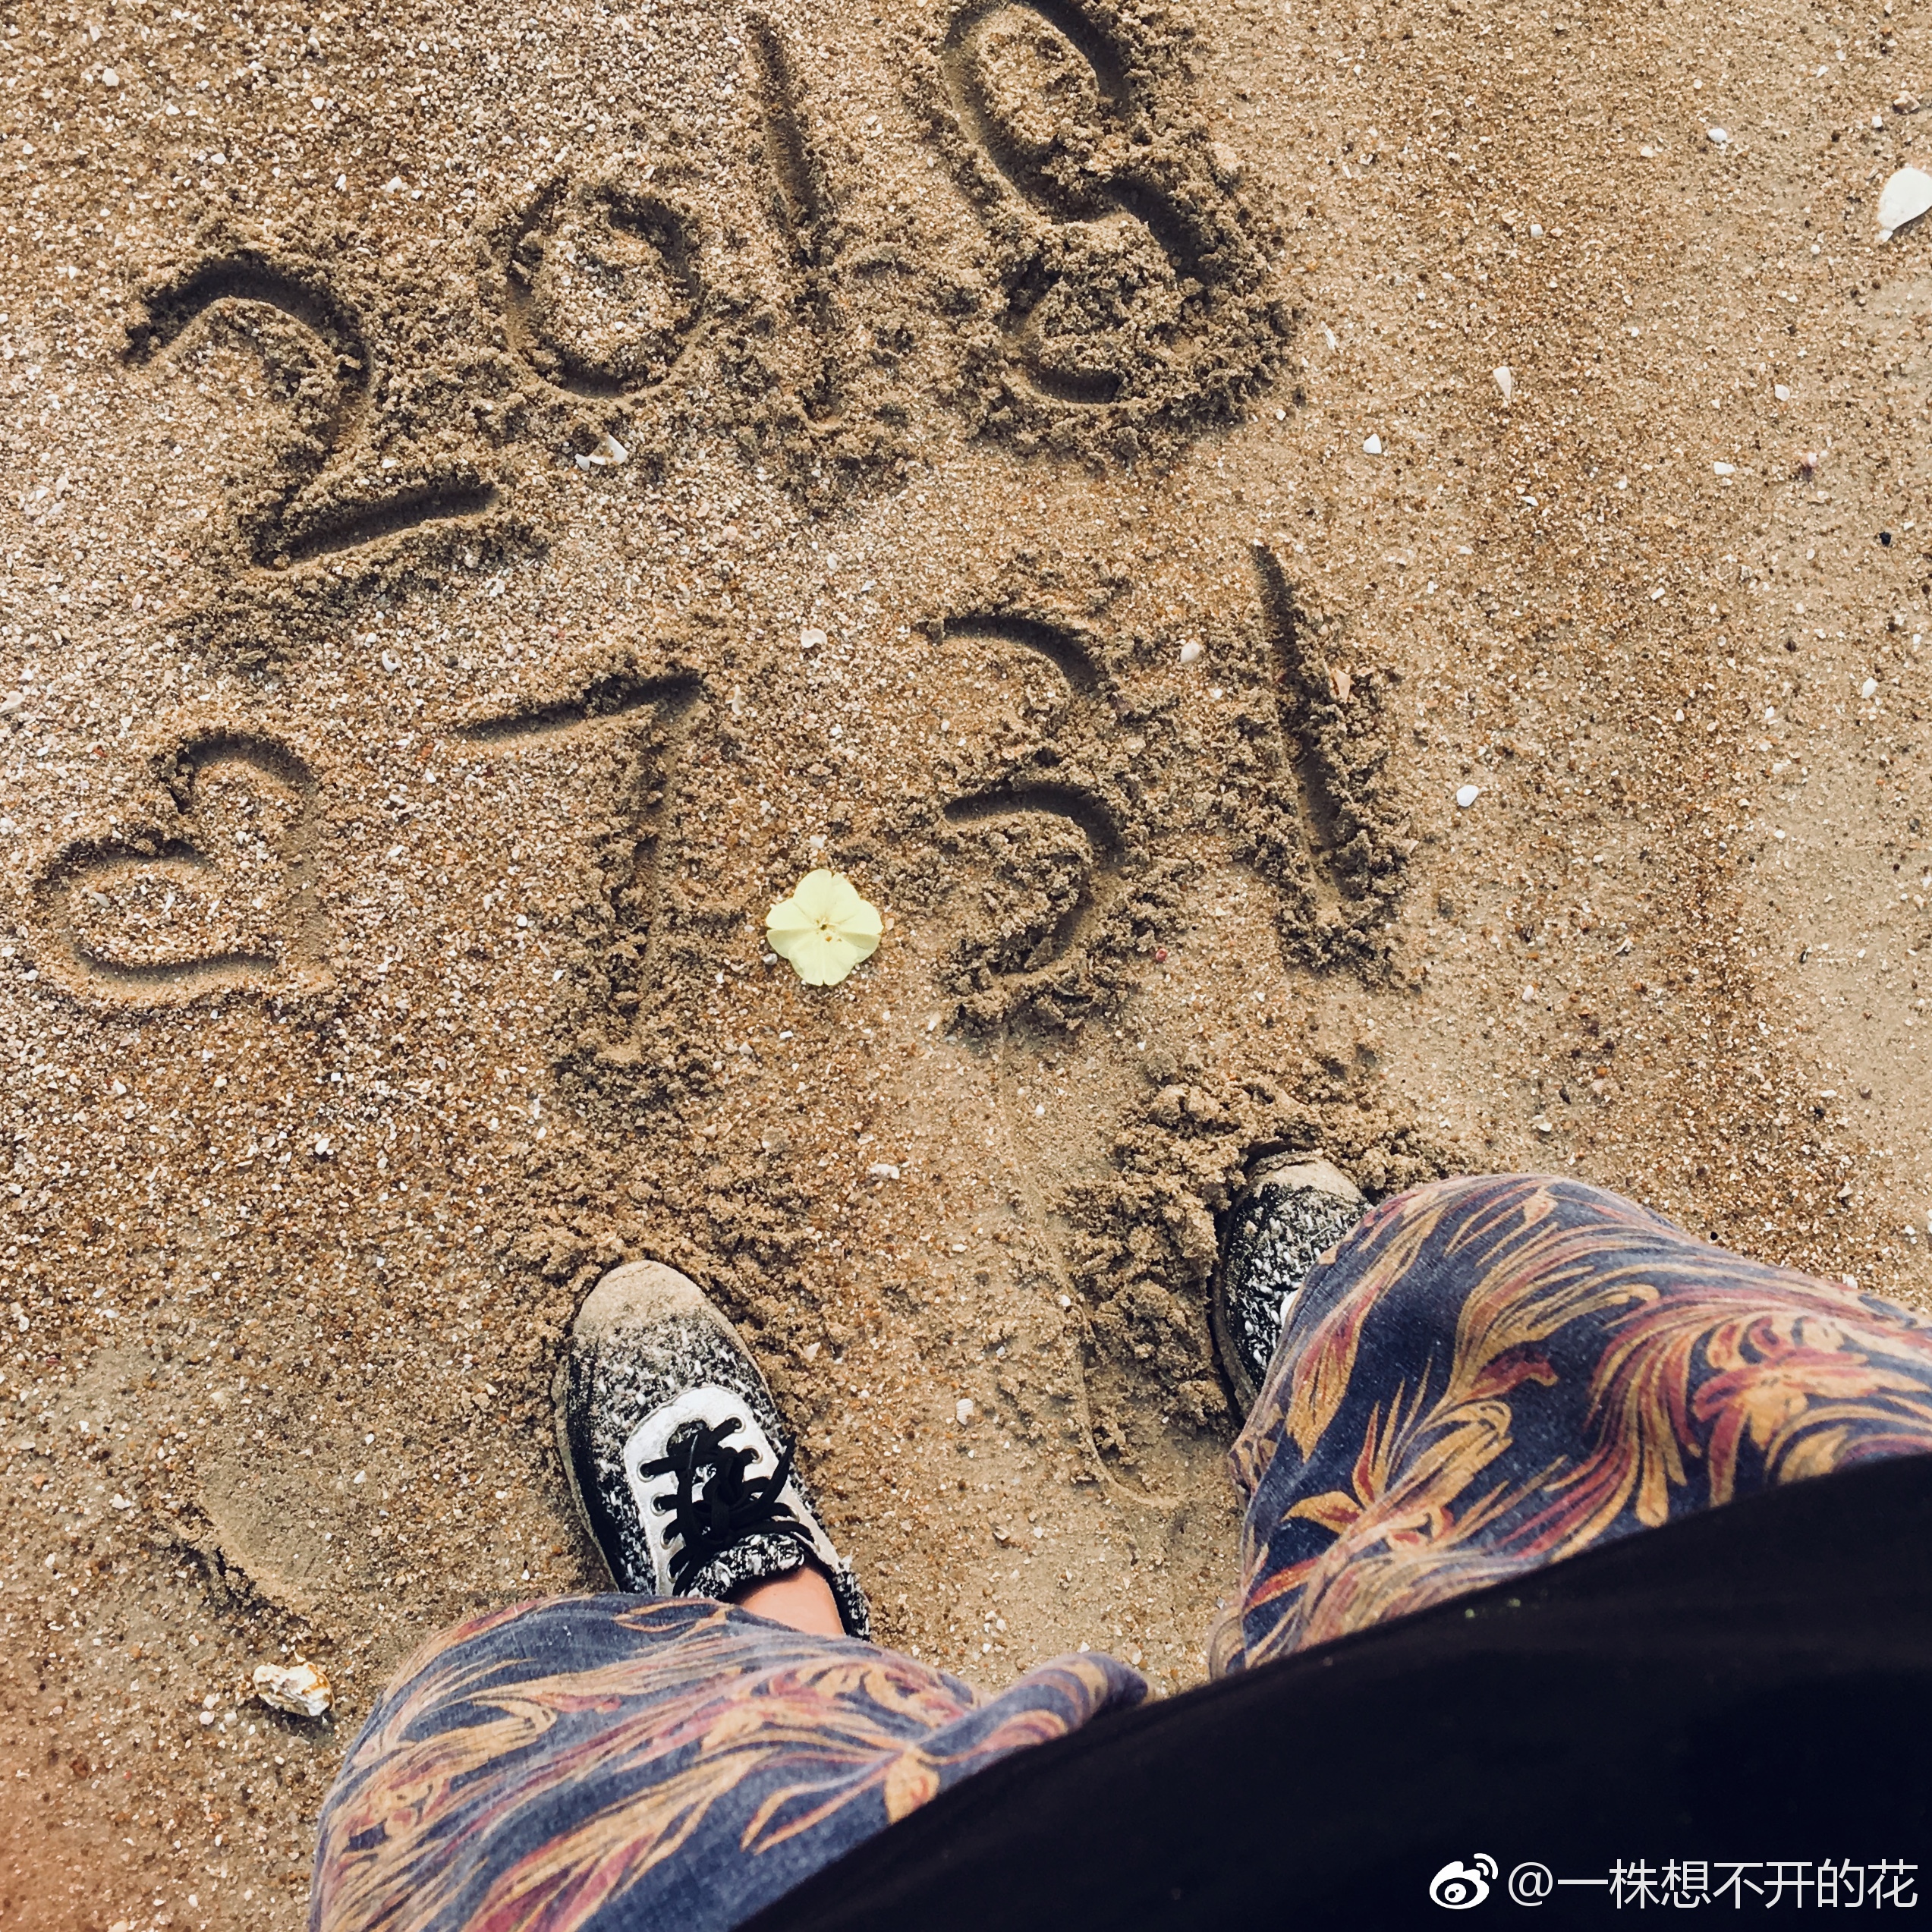 2018
♡7.31
@一株想不开的花